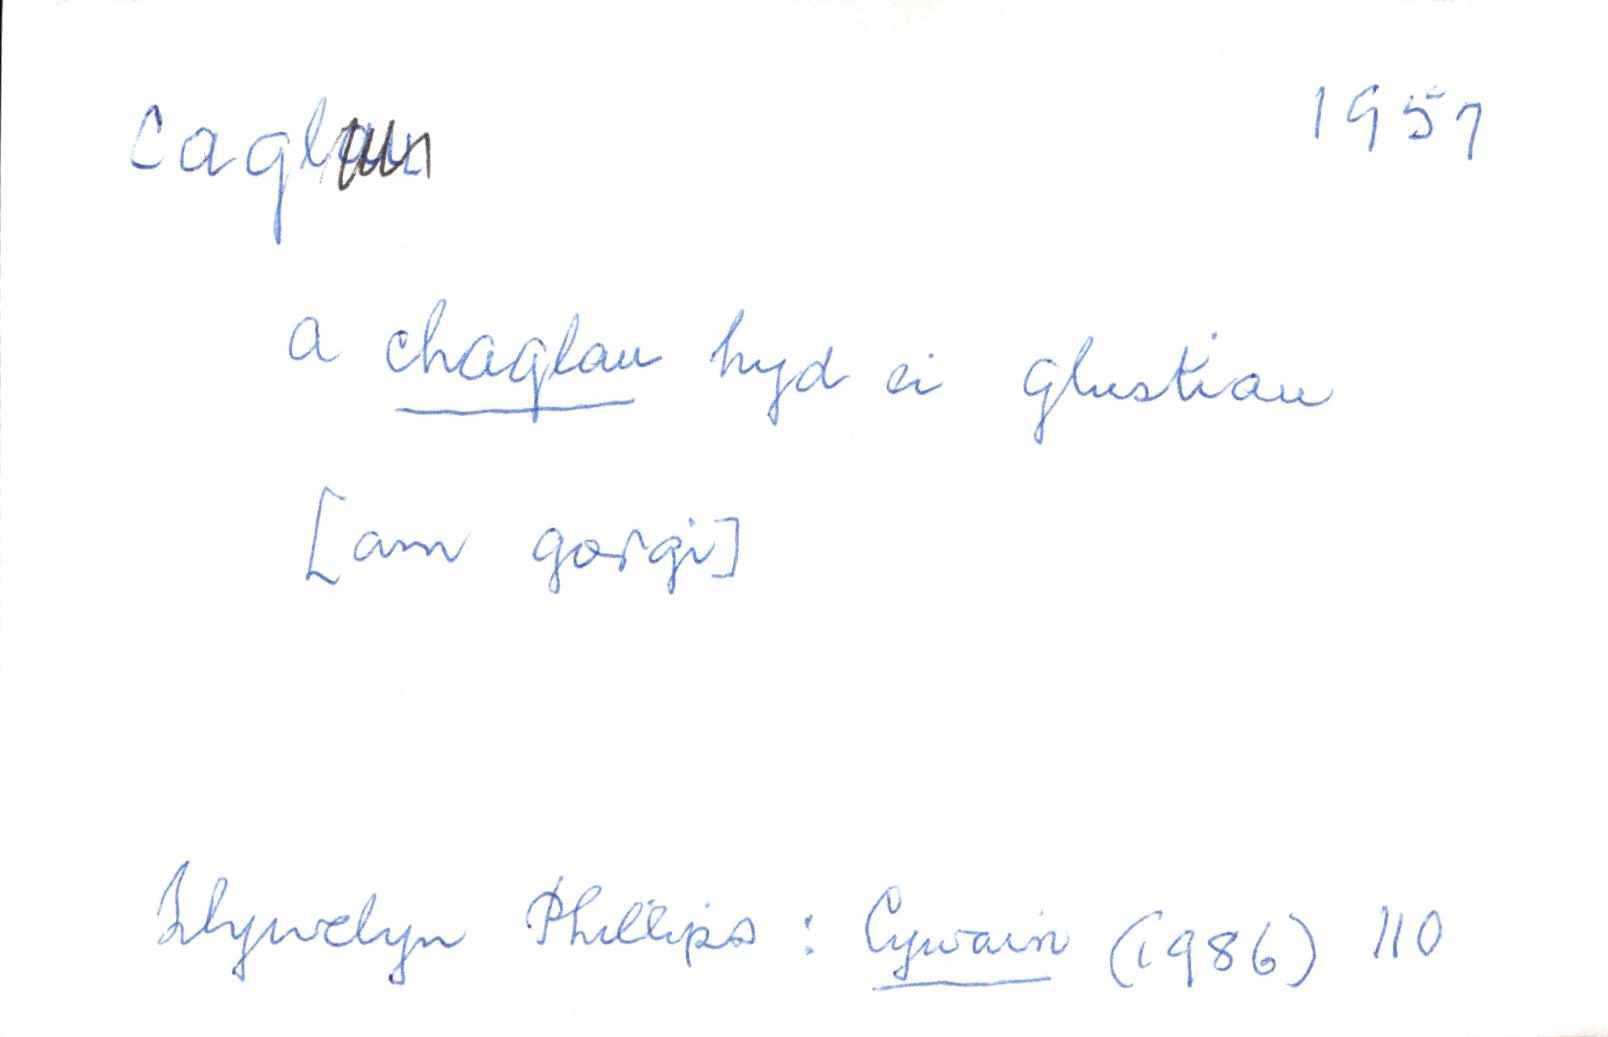 cagl
1957
a chaglau hyd ei glustiau
[am gorgi]
Llywelyn Phillips : Cywain (1986) 110